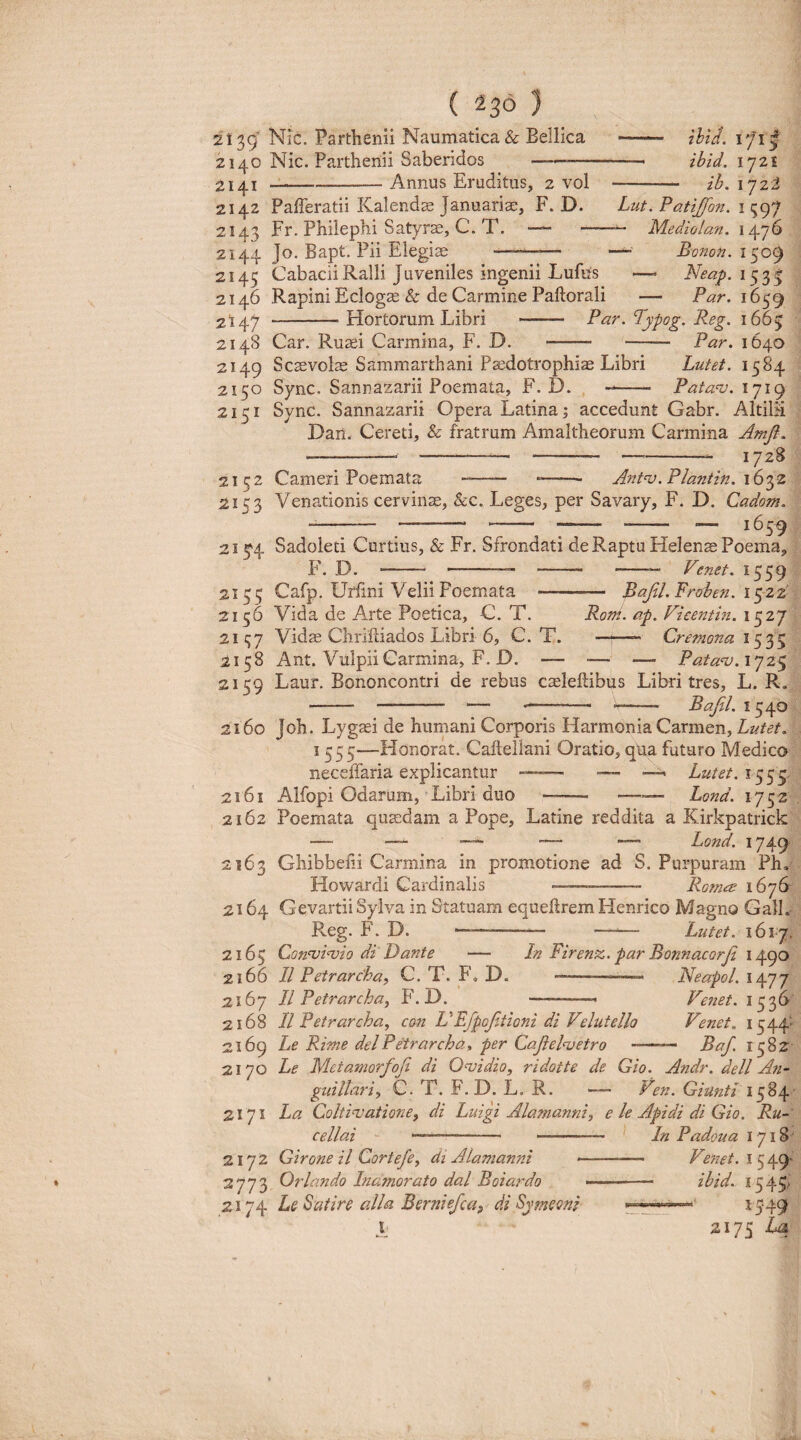 ( 230 )
2139 Nic. Parthenii Naumatica & Bellica —— ibid. 1715
2140 Nic. Parthenii Saberidos ———— ibid. 1721
2141 ———— Annus Eruditus, 2 vol —— ib. 1722
2142 Paſſeratii Kalendæ Januariæ, F. D. Lut. Patiſſon. 1597
2143 Fr. Philephi Satyræ, C. T. — —— Mediolan. 1476
2144 Jo. Bapt. Pii Elegiæ —— — Bonon. 1509
2145 Cabacii Ralli Juveniles ingenii Luſus — Neap. 1535
2146 Rapini Eclogæ & de Carmine Paſtorali — Par. 1659
2147 ——— Hortorum Libri —— Par. Typog. Reg. 1665
2148 Car. Ruæi Carmina, F. D. —— —— Par. 1640
2149 Scævolæ Sammarthani Pædotrophiæ Libri Lutet. 1584
2150 Sync. Sannazarii Poemata, F. D. —— Patav. 1719
2151 Sync. Sannazarii Opera Latina; accedunt Gabr. Altilii
Dan. Cereti, & fratrum Amaltheorum Carmina Amſt.
——— ——— ——— ——— 1728
2152 Cameri Poemata —— —— Antv. Plantin. 1632
2153 Venationis cervinæ, &c. Leges, per Savary, F. D. Cadom.
——— —— —— —— —— — 1659
2154 Sadoleti Curtius, & Fr. Sfrondati de Raptu Helenæ Poema,
F. D. —— ——— —— —— Venet. 1559
2155 Caſp. Urſini Velii Poemata ——— Baſil. Froben. 1522
2156 Vida de Arte Poetica, C. T. Rom. ap. Vicentin. 1527
2157 Vidæ Chriſtiados Libri 6, C. T. —— Cremona 1535
2158 Ant. Vulpii Carmina, F. D. — — — Patav. 1725
2159 Laur. Bononcontri de rebus cæleſtibus Libri tres, L. R.
—— ——— — —— —— Baſil. 1540
2160 Joh. Lygæi de humani Corporis Harmonia Carmen, Lutet.
1555—Honorat. Caſtellani Oratio, qua futuro Medico
neceſſaria explicantur —— — — Lutet. 1555
2161 Alſopi Odarum, Libri duo —— —— Lond. 1752
2162 Poemata quædam a Pope, Latine reddita a Kirkpatrick
— — — — — Lond. 1749
2163 Ghibbeſii Carmina in promotione ad S. Purpuram Ph.
Howardi Cardinalis ——— Romæ 1676
2164 Gevartii Sylva in Statuam equeſtrem Henrico Magno Gall.
Reg. F. D. ——— —— Lutet. 1617.
2165 Convivio di Dante — In Firenz. par Bonnacorſi 1490
2166 Il Petrarcha, C. T. F. D. ——— Neapol. 1477
2167 Il Petrarcha, F. D. ——— Venet. 1536
2168 Il Petrarcha, con L'Eſpoſitioni di Velutello Venet. 1544
2169 Le Rime del Petrarcha, per Caſtelvetro —— Baſ. 1582
2170 Le Metamorfoſi di Ovidio, ridotte de Gio. Andr. dell An-
guillari, C. T. F. D. L. R. — Ven. Giunti 1584
2171 La Coltivatione, di Luigi Alamanni, e le Apidi di Gio. Ru-
cellai ——— ——— In Padoua 1718
2172 Girone il Corteſe, di Alamanni ——— Venet. 1549
2773 Orlando Inamorato dal Boiardo ——— ibid. 1545
2174 Le Satire alla Bernieſca, di Symeoni ——— 1549
1 2175 La